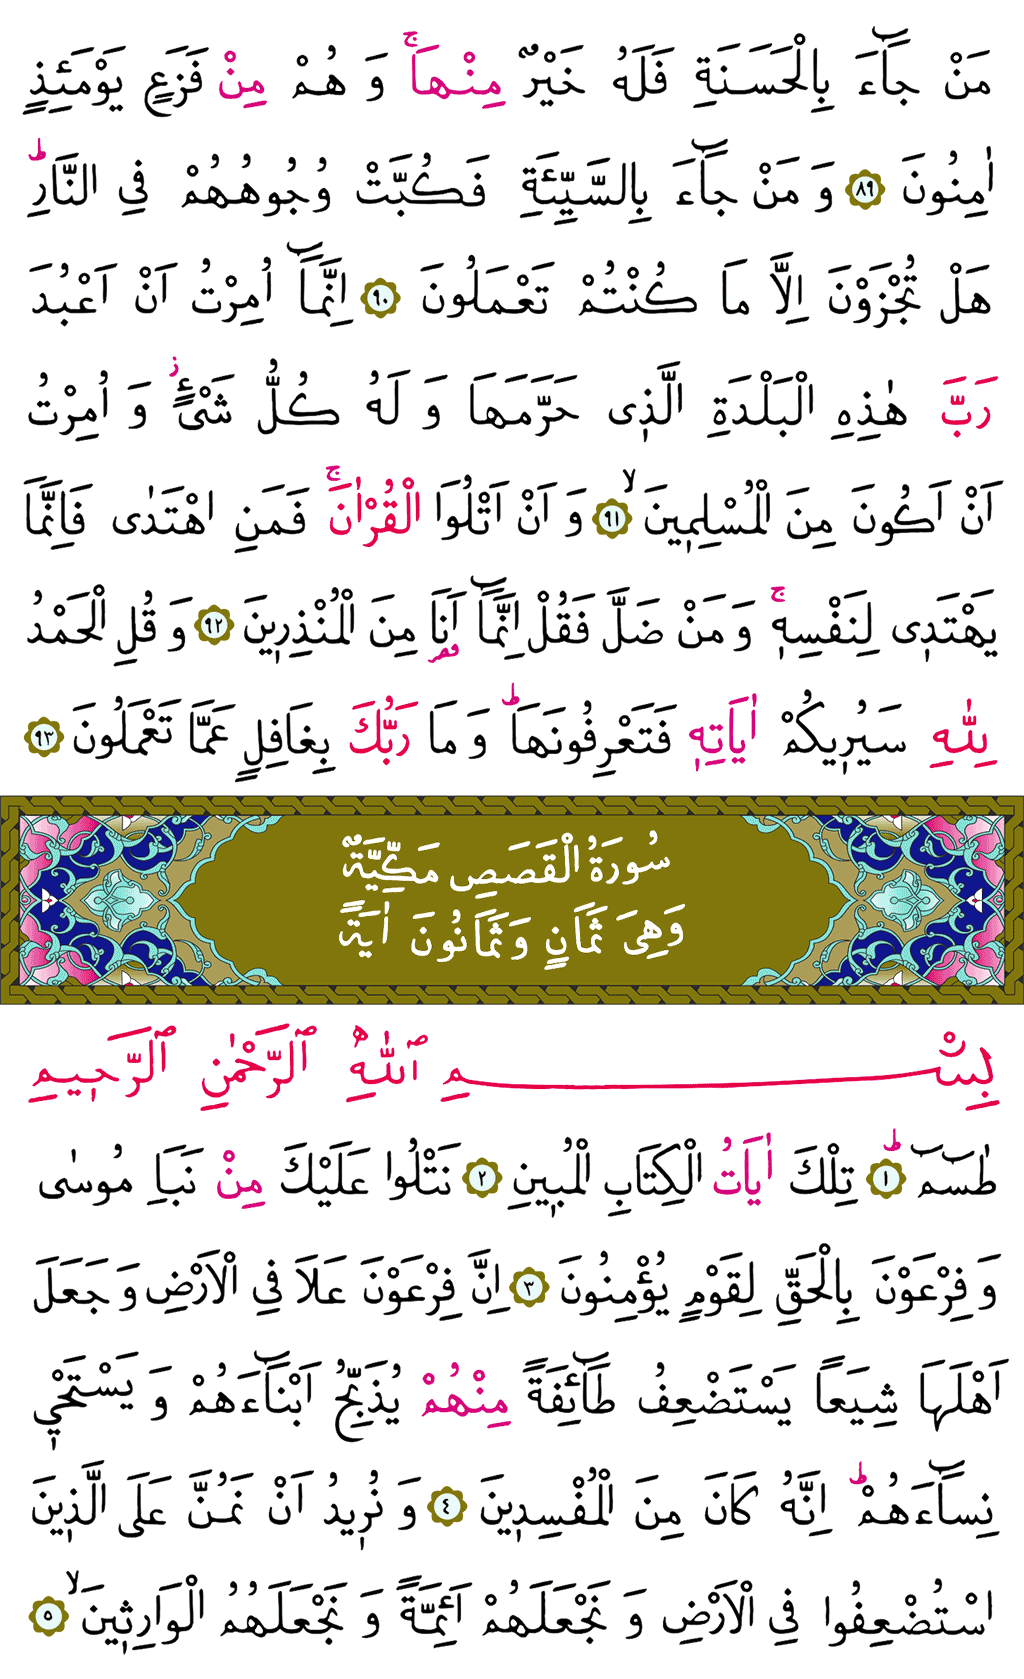 مَنْ جَٓاءَ بِالْحَسَنَةِ فَلَهُ خَيْرٌ مِنْهَاۚ وَ هُمْ مِنْ فَزَعٍ يَوْمَئِذٍ
اٰمِنُونَ ﴿٨٩﴾ وَ مَنْ جَٓاءَ بِالسَّيِّئَةِ فَكُبَّتْ وُجُوهُهُمْ فِي النَّارِۜ
هَلْ تُجْزَوْنَ اِلَّا مَا كُنْتُمْ تَعْمَلُونَ ﴿٩٠﴾ اِنَّمَٓا اُمِرْتُ اَنْ اَعْبُدَ
رَبَّ هٰذِهِ الْبَلْدَةِ الَّذٖى حَرَّمَهَا وَ لَهُ كُلُّ شَىْءٍؗ وَ اُمِرْتُ
اَنْ اَكُونَ مِنَ الْمُسْلِمٖينَۙ ﴿٩١﴾ وَ اَنْ اَتْلُوَا الْقُرْاٰنَۚ فَمَنِ اهْتَدٰى فَاِنَّمَا
يَهْتَدٖى لِنَفْسِهٖۚ وَ مَنْ ضَلَّ فَقُلْ اِنَّمَٓا اَنَا قصر مِنَ الْمُنْذِرٖينَ ﴿٩٢﴾ وَ قُلِ الْحَمْدُ
لِلّٰهِ سَيُرٖيكُمْ اٰيَاتِهٖ فَتَعْرِفُونَهَاۜ وَ مَا رَبُّكَ بِغَافِلٍ عَمَّا تَعْمَلُونَ ﴿٩٣﴾
سُورَةُ الْقَصَصِ مَكِّيَّةٌ
وَهِىَ ثَمَانٍ وَثَمَانُونَ اٰيَةً
بِسْمِ ٱللّٰهِ ٱلرَّحْمٰنِ ٱلرَّحٖيمِ
طٰسٓمٓۜ ﴿١﴾ تِلْكَ اٰيَاتُ الْكِتَابِ الْمُبٖينِ ﴿٢﴾ نَتْلُوا عَلَيْكَ مِنْ نَبَاِ مُوسٰى
وَ فِرْعَوْنَ بِالْحَقِّ لِقَوْمٍ يُؤْمِنُونَ ﴿٣﴾ اِنَّ فِرْعَوْنَ عَلَا فِي الْاَرْضِ وَ جَعَلَ
اَهْلَهَا شِيَعًا يَسْتَضْعِفُ طَٓائِفَةً مِنْهُمْ يُذَبِّحُ اَبْنَٓاءَهُمْ وَ يَسْتَحْيٖ
نِسَٓاءَهُمْۜ اِنَّهُ كَانَ مِنَ الْمُفْسِدٖينَ ﴿٤﴾ وَ نُرٖيدُ اَنْ نَمُنَّ عَلَى الَّذٖينَ
اسْتُضْعِفُوا فِي الْاَرْضِ وَ نَجْعَلَهُمْ اَئِمَّةً وَ نَجْعَلَهُمُ الْوَارِثٖينَۙ ﴿٥﴾